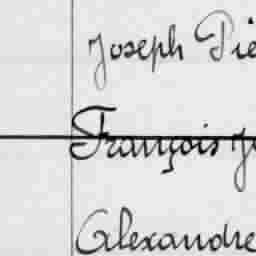 Joseph Pie
François J
Alexandre